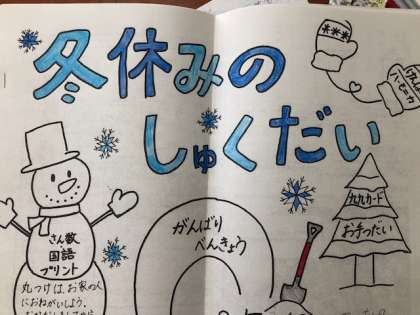 冬休みの
しゅくだい
さん数
国語
プリント
丸つけは、お家の人
におねがいしよう。
がんばり
べんきょう
九九カード
お手つだい